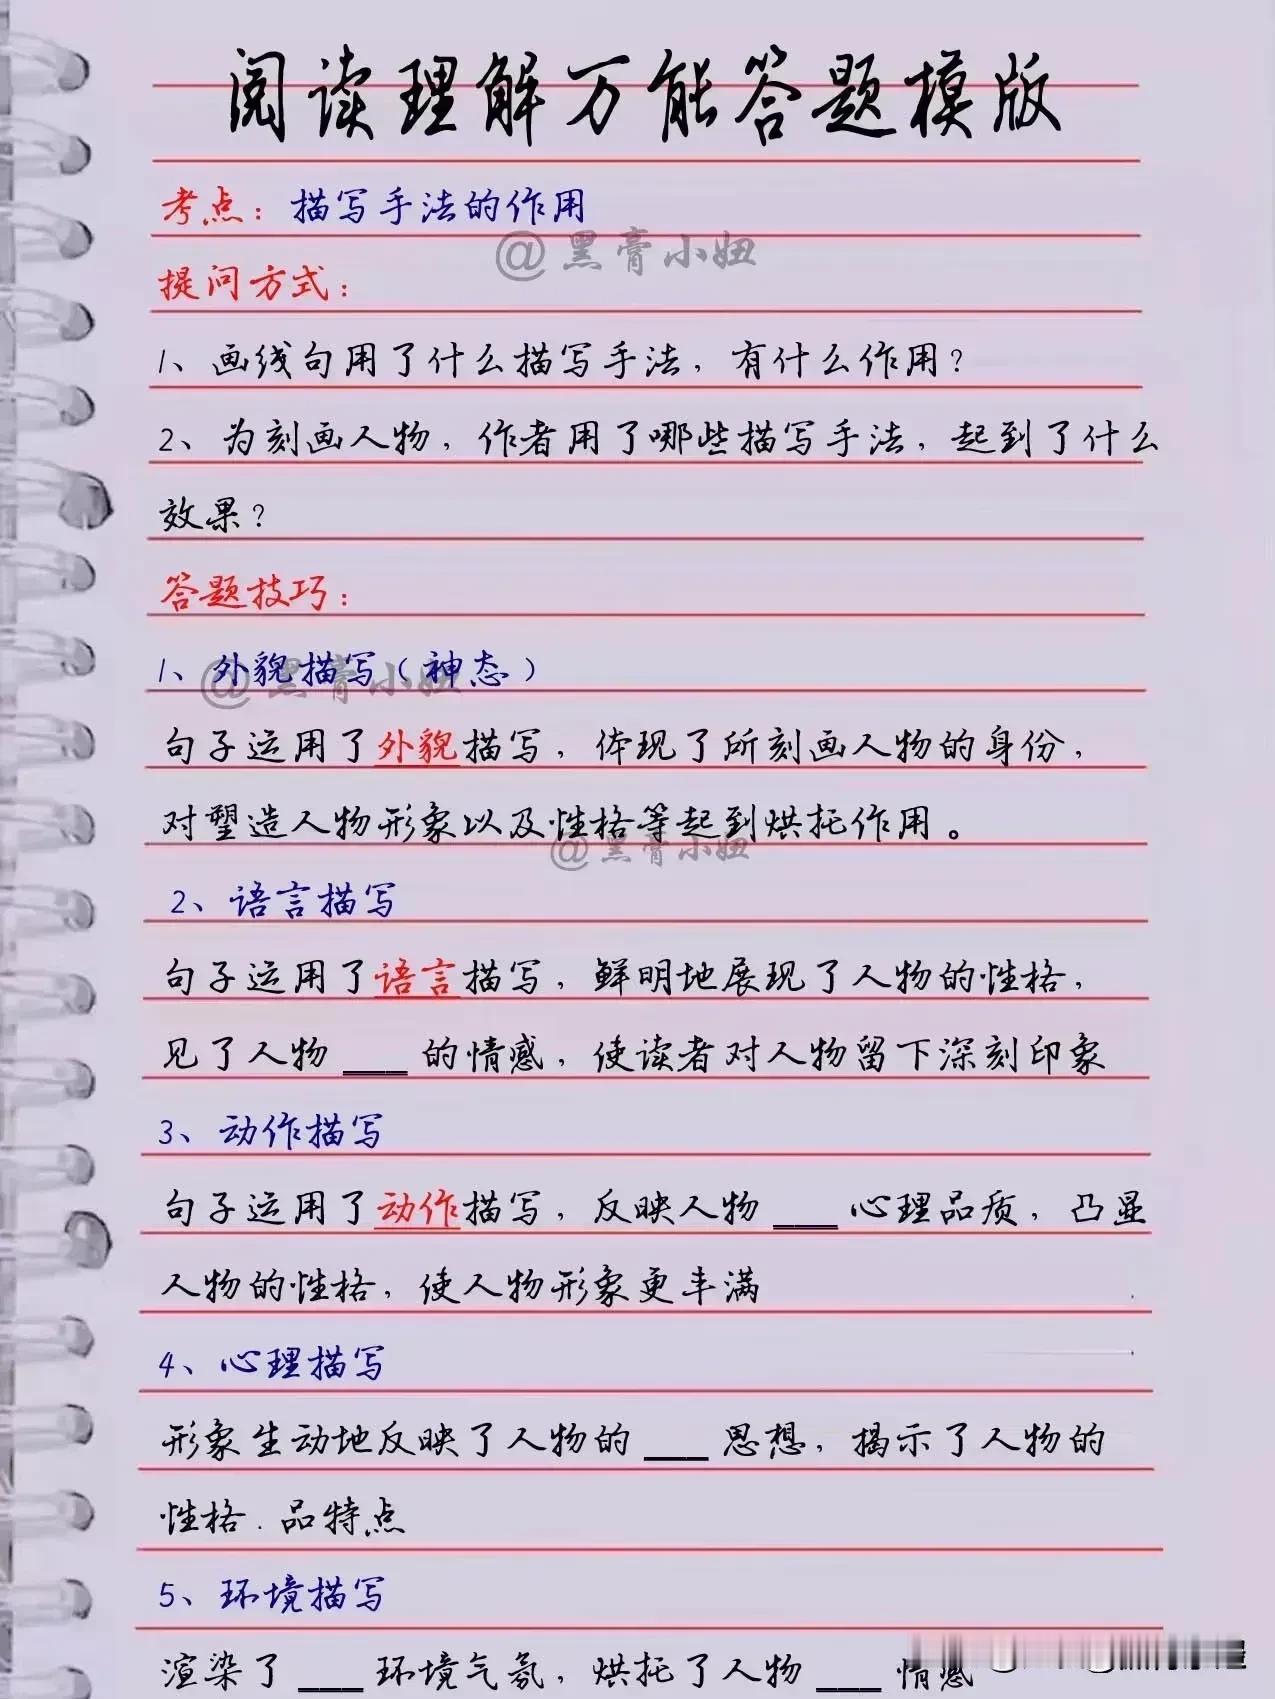 阅读理解万能答题模版
考点：描写手法的作用
@黑膏小妞
提问方式：
1、画线句用了什么描写手法，有什么作用？
2、为刻画人物，作者用了哪些描写手法，起到了什么
效果？
答题技巧：
1、外貌描写（神态）
@黑膏小妞
句子运用了外貌描写，体现了所刻画人物的身份，
对塑造人物形象以及性格等起到烘托作用。
@黑膏小妞
2、语言描写
句子运用了语言描写，鲜明地展现了人物的性格，
见了人物___的情感，使读者对人物留下深刻印象
3、动作描写
句子运用了动作描写，反映人物___心理品质，凸显
人物的性格，使人物形象更丰满
4、心理描写
形象生动地反映了人物的___思想，揭示了人物的
性格.品特点
5、环境描写
渲染了___环境气氛，烘托了人物___情感